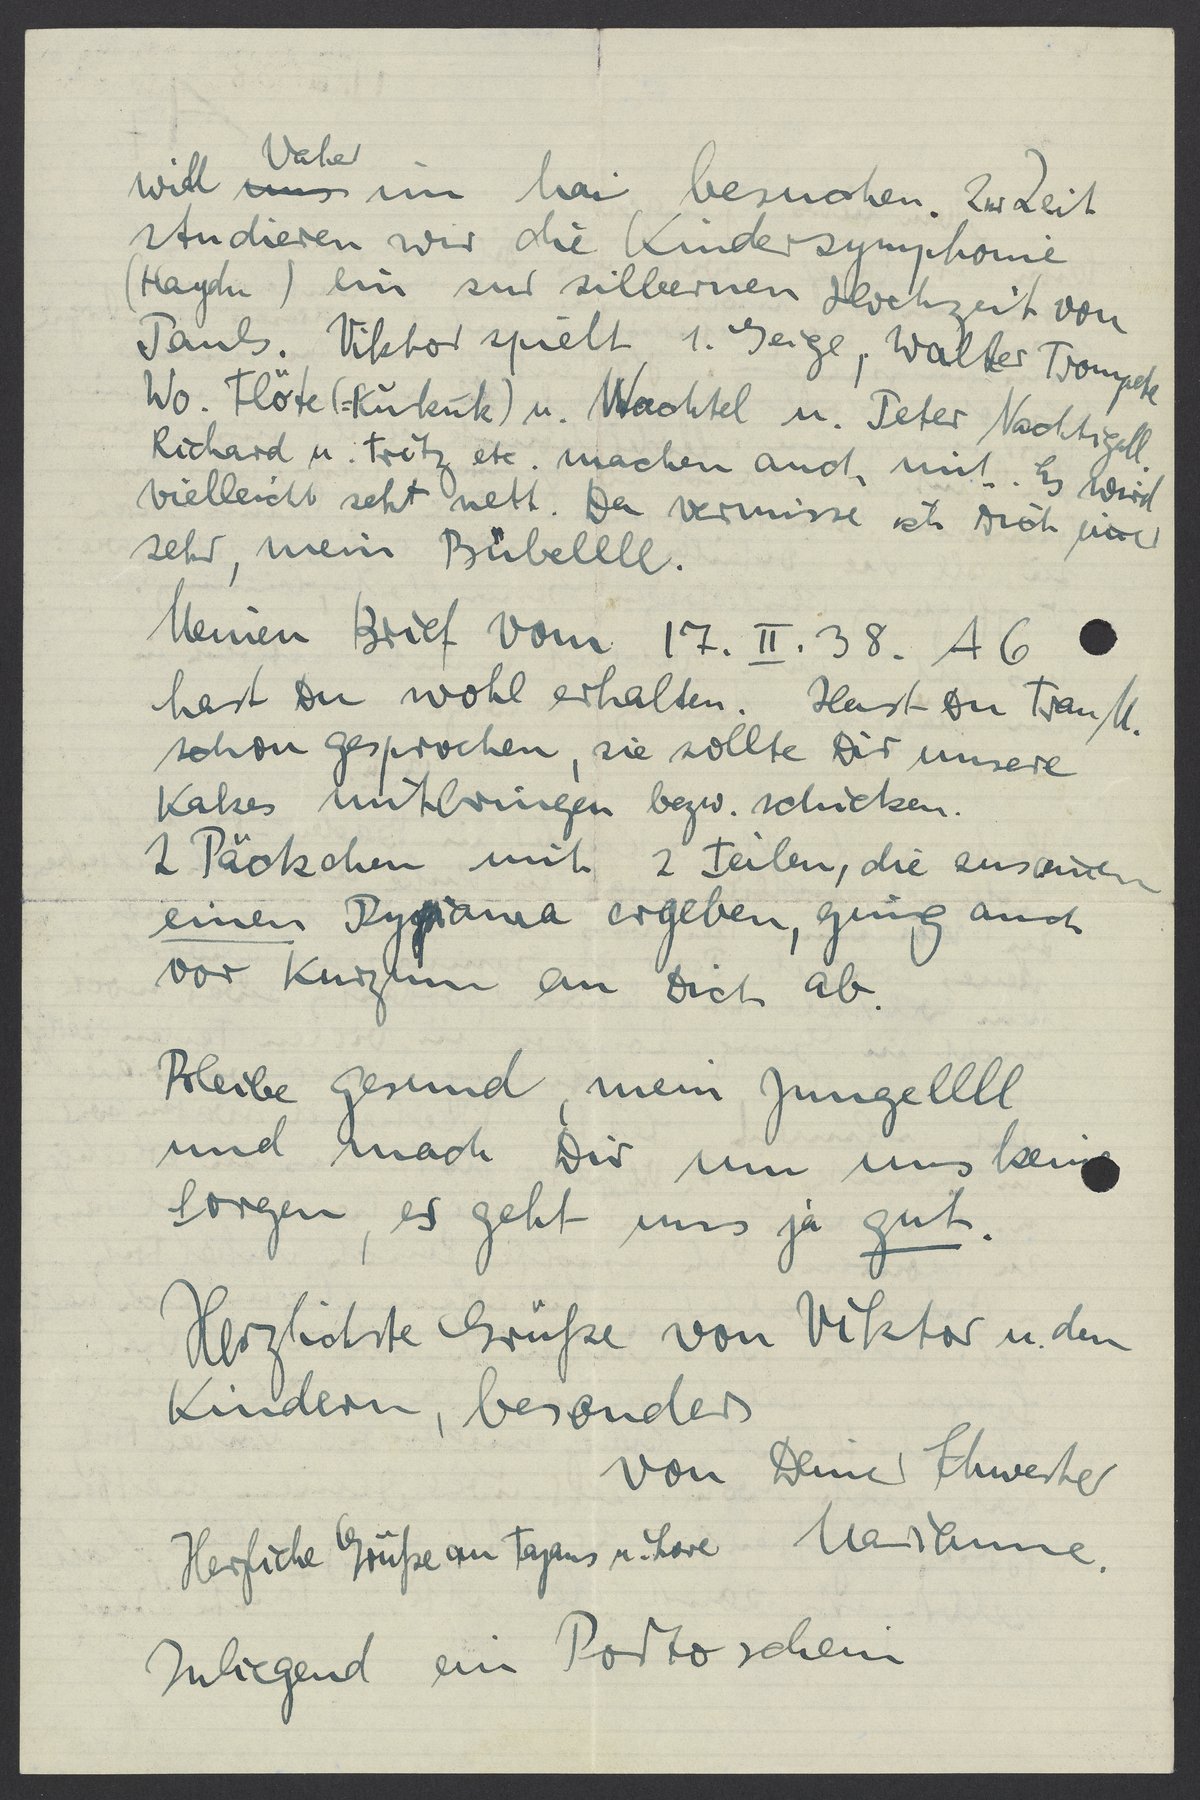 will Vater im Mai besuchen. Zur Zeit
studieren wir die Kindersymphonie
(Haydn) ein zur silbernen Hochzeit von
Pauls. Viktor spielt 1. Geige, Walter Trompete
Wo. Flöte (=Kukuk) u. Wachtel u. Peter Nachtigall.
Richard u. Fritz etc. machen auch mit. Es wird
vielleicht sehr nett. Da vermisse ich Dich immer
sehr, mein Bübellll.
Meinen Brief vom 17. II. 38. A6
hast Du wohl erhalten. Hast Du Frau M.
schon gesprochen, sie sollte Dir unsere
Kakes mitbringen bezw. schicken.
2 Päckchen mit 2 Teilen, die zusammen
einen Pyjama ergeben, ging auch
vor Kurzum an Dich ab.
Bleibe gesund, mein Jungellll
und mach Dir um uns keine
Sorgen, es geht uns ja gut.
Herzlichste Grüße von Viktor u. den
Kindern, besonders
von Deiner Schwester
Herzliche Grüße an Tajans u. Lore Marianne.
Inliegend ein Portoschein